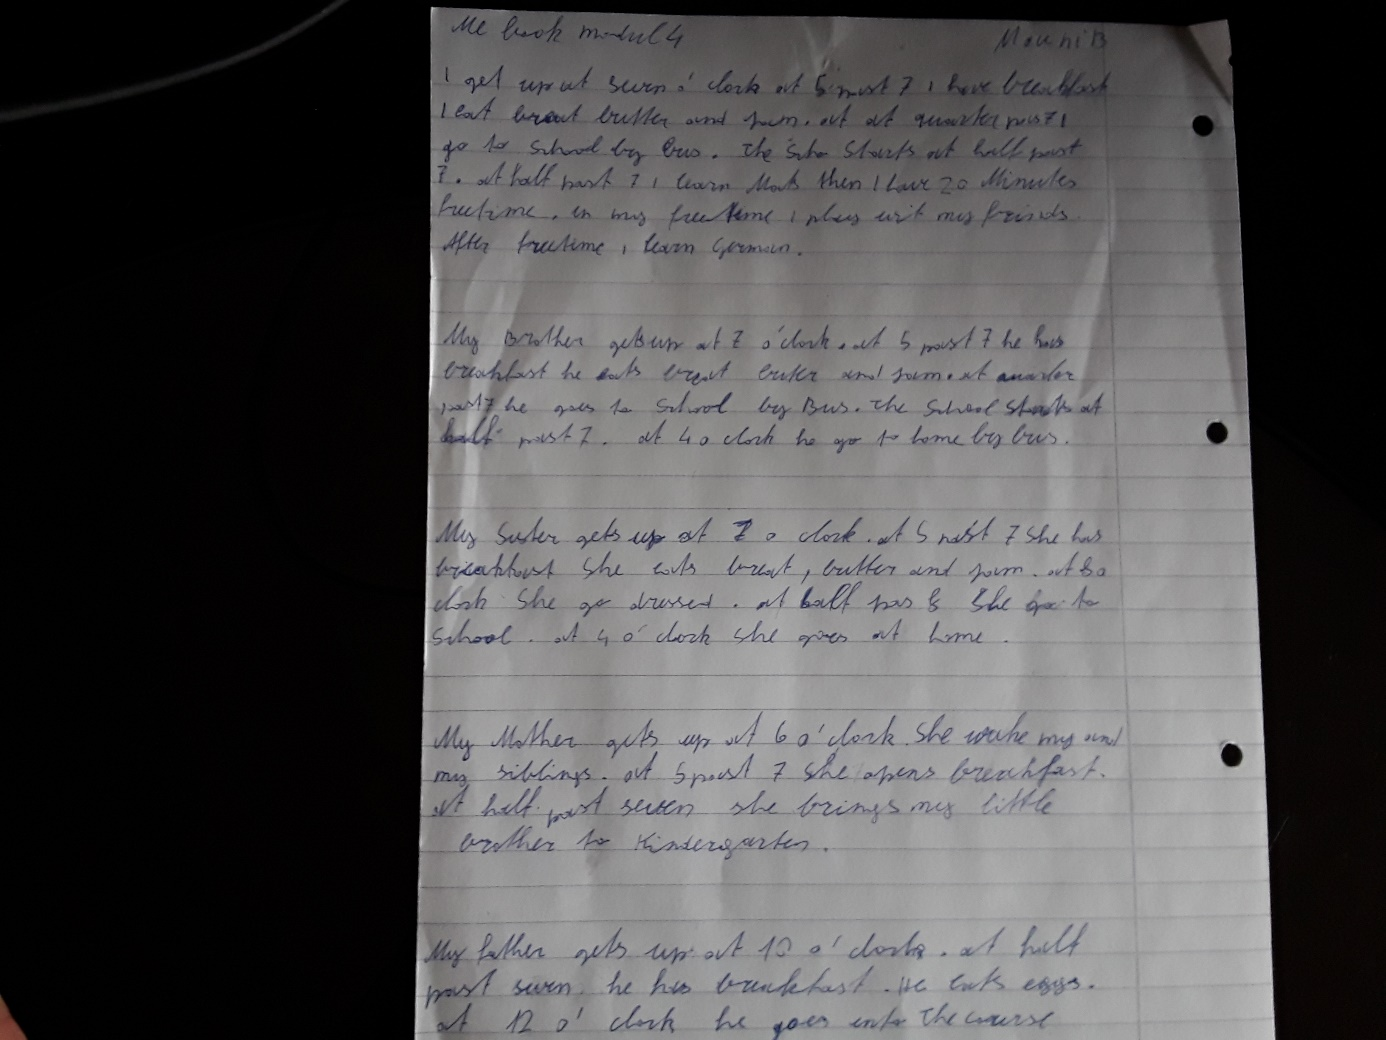 Me book modul 4 Mounib
I get up at seven o'clock at 5 past 7 I have breakfast
I eat breat butter and jam. at at quarter past 7 I
go to school by bus. The Scho Starts at half past
7. at half past 7 I learn Mats then I have 20 Minutes
freetime. in my freetime I play wit my friends
After freetime I learn German.
My Brother gets up at 7 o'clock. at 5 past 7 he has
breakfast he eats breat buter and jam. at quarter
past 7 he goes to School by Bus. The School Starts at
half past 7. at 4 o clock he go to home by bus.
My Sister gets up at 7 o clock. at 5 past 7 She has
breakfast She eats breat, butter and jam. at 8 o
clock She go dressed. at half pas 8 She go to
School. at 4 o'clock She goes at home.
My Mother gets up at 6 o'clock. She wake my and
my siblings. at 5 past 7 She opens breakfast.
at half past seven she brings my little
brother to Kindergarten.
My father gets up at 10 o'clock. at half
past seven he has breakfast. He eats eggs.
at 12 o'clock he goes into the course